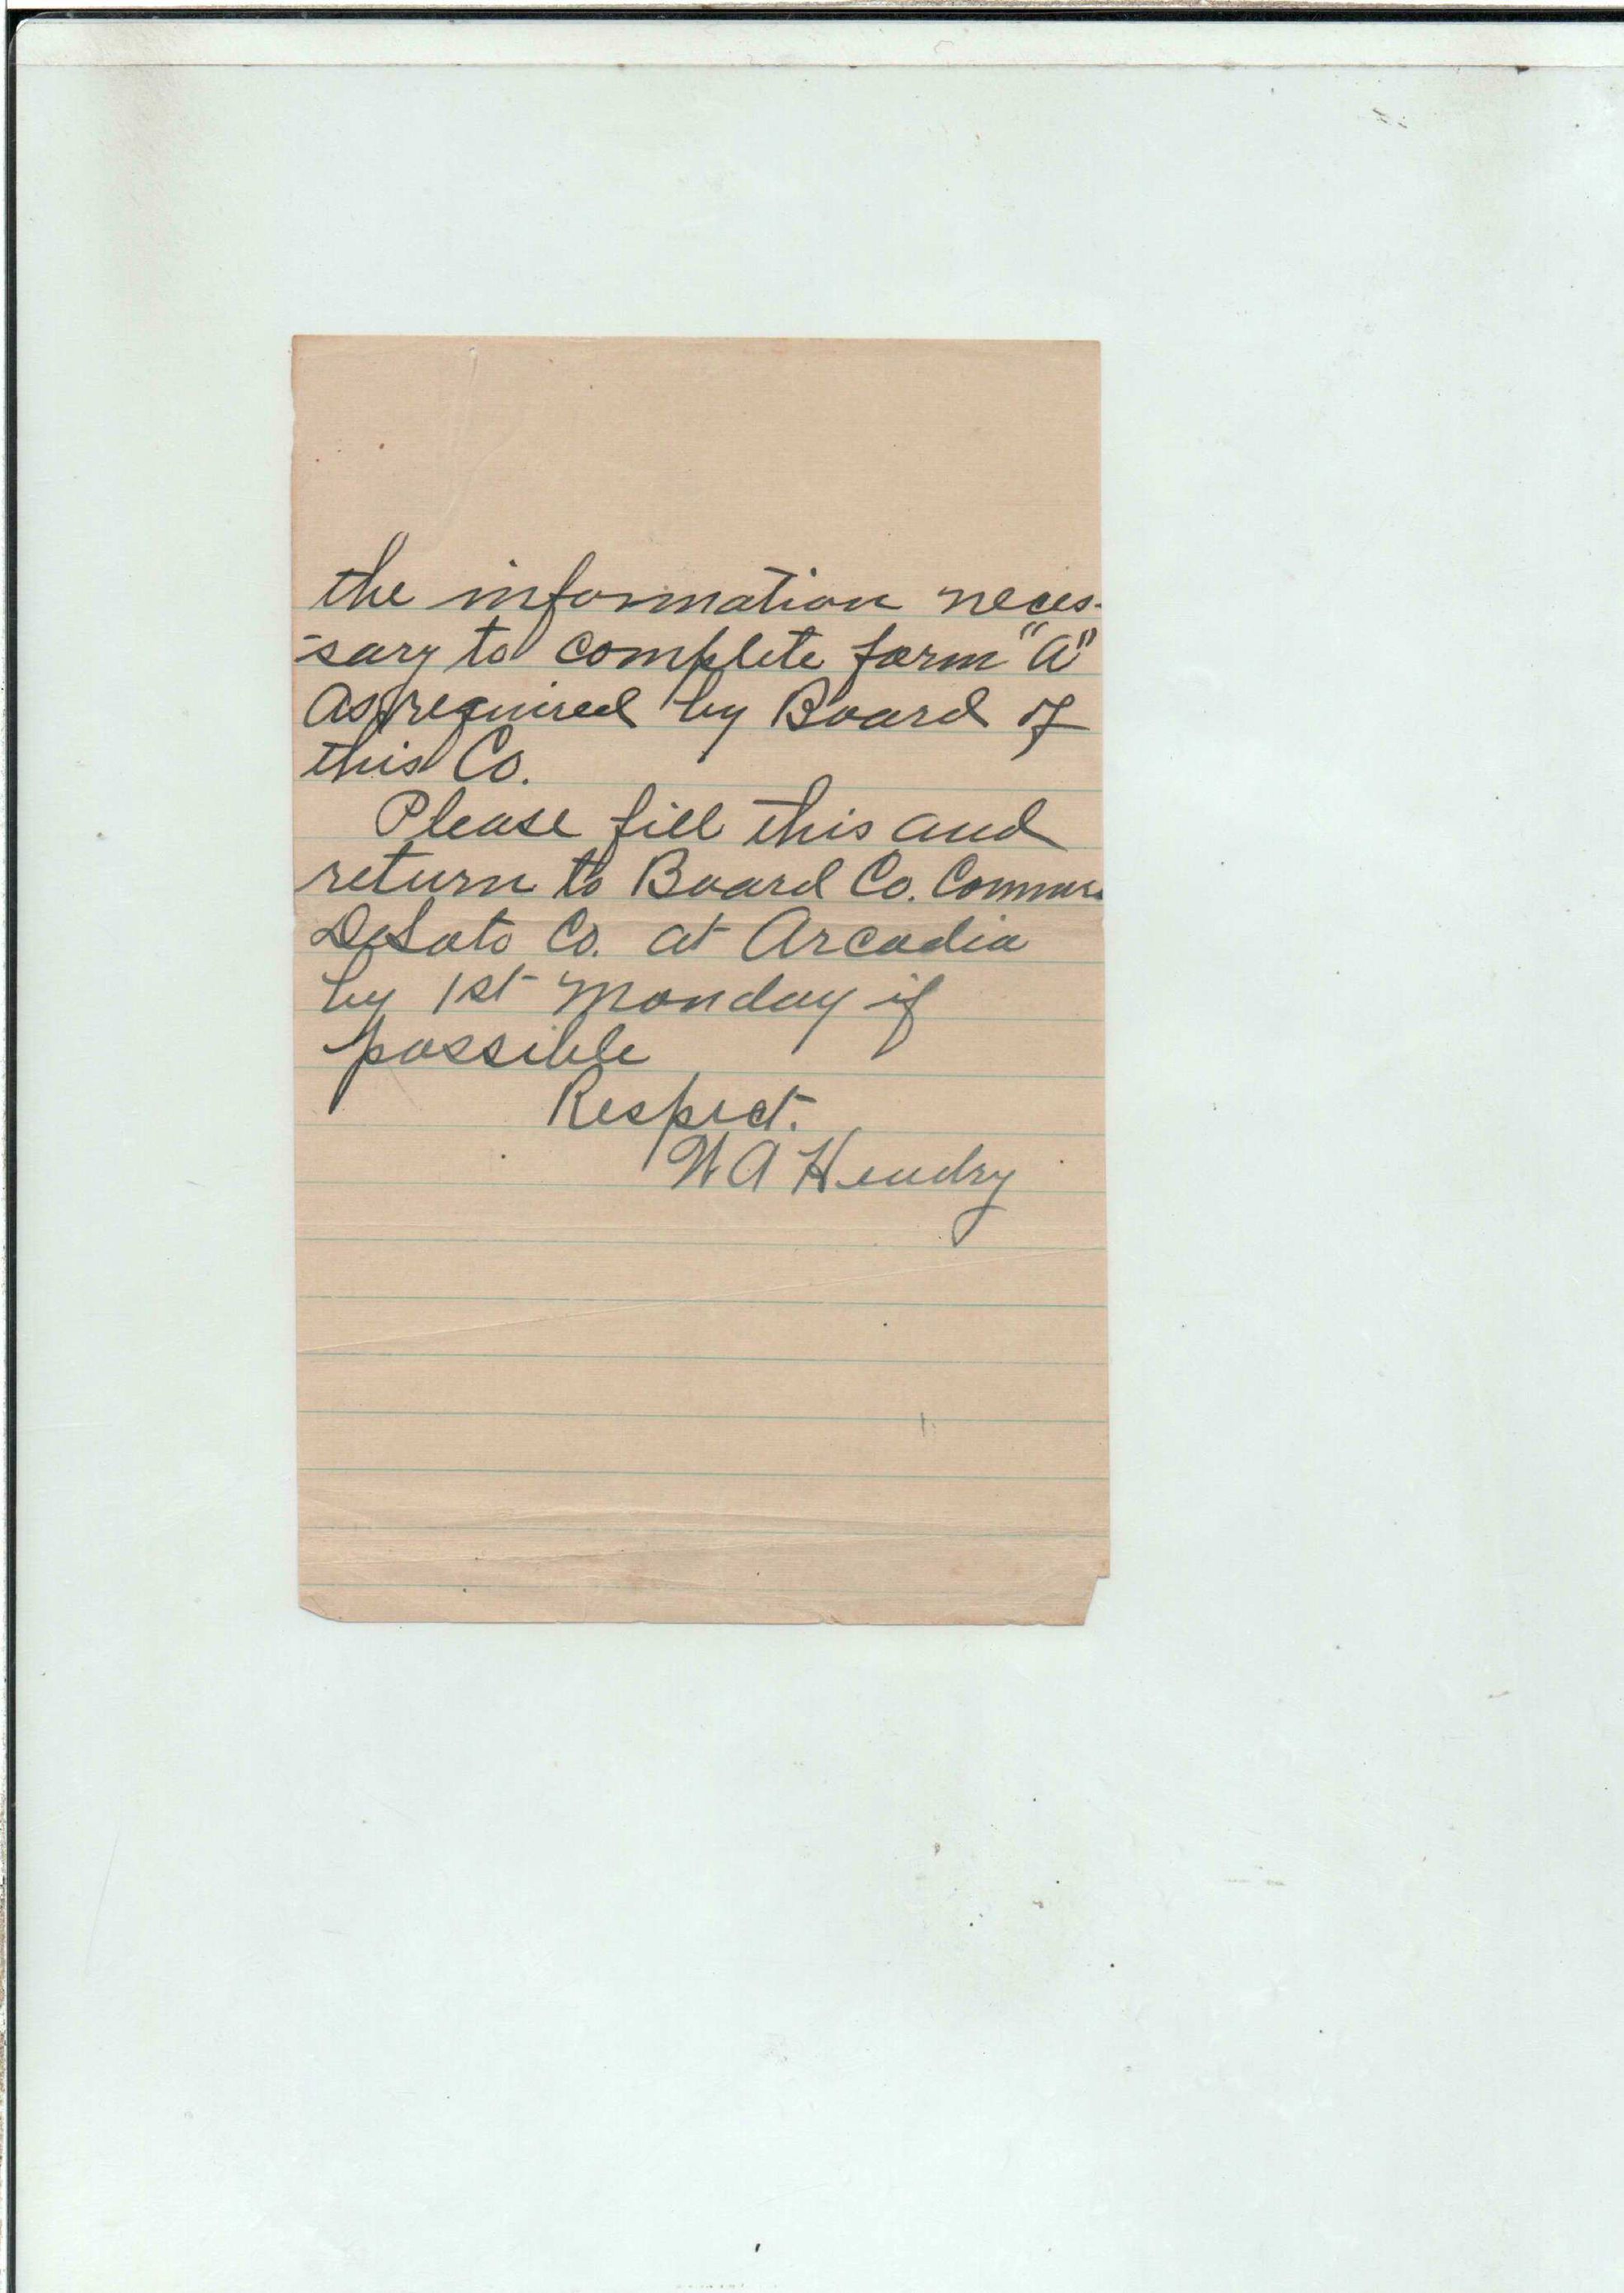 the information neces-
-sary to complete form "A"
as required by Board of
this Co.
Please fill this and
return to Board Co. Commrs
DeSoto Co. at Arcadia
by 1st Monday if
possible
Respect.
W A Hendry